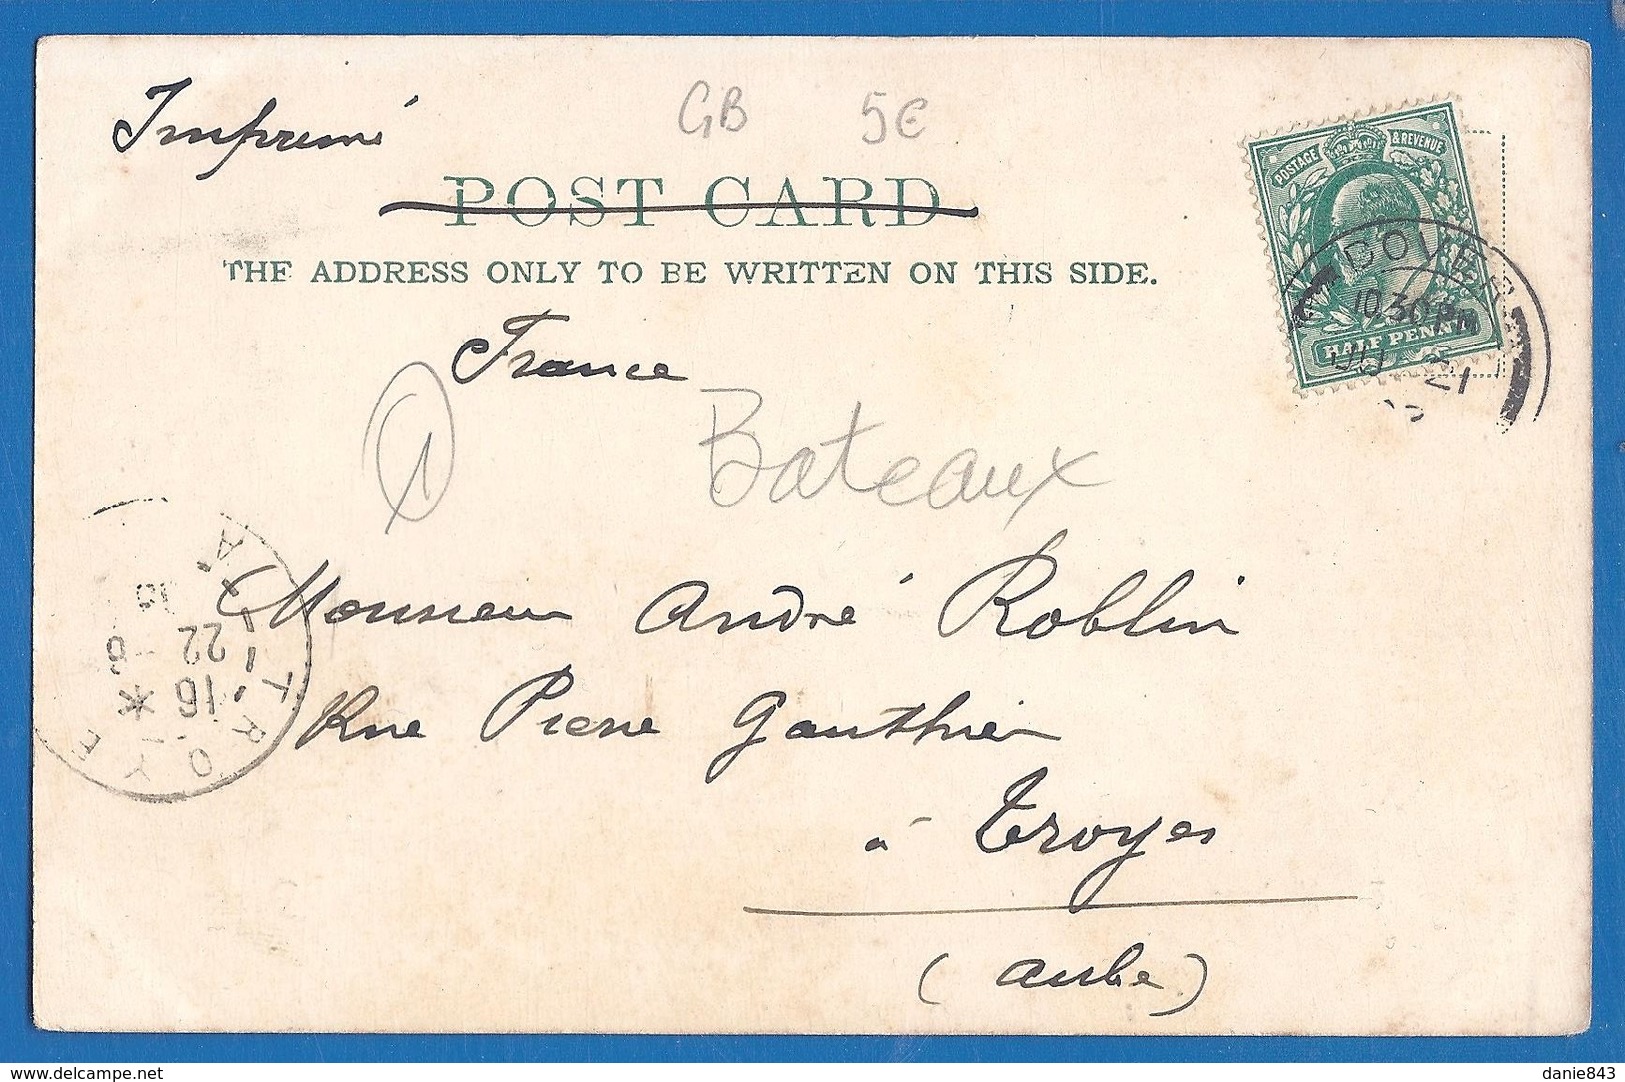 Imprimé
GB 5€
POST CARD
THE ADDRESS ONLY TO BE WRITTEN ON THIS SIDE.
POSTAGE & REVENUE
HALF PENNY
DOVER
10.30 PM
21
France
1
Bateaux
Monsieur André Roblin
Rue Pierre Gauthier
à Troyes
(Aube)
TROYES
16
22
delcampe.net
danie843